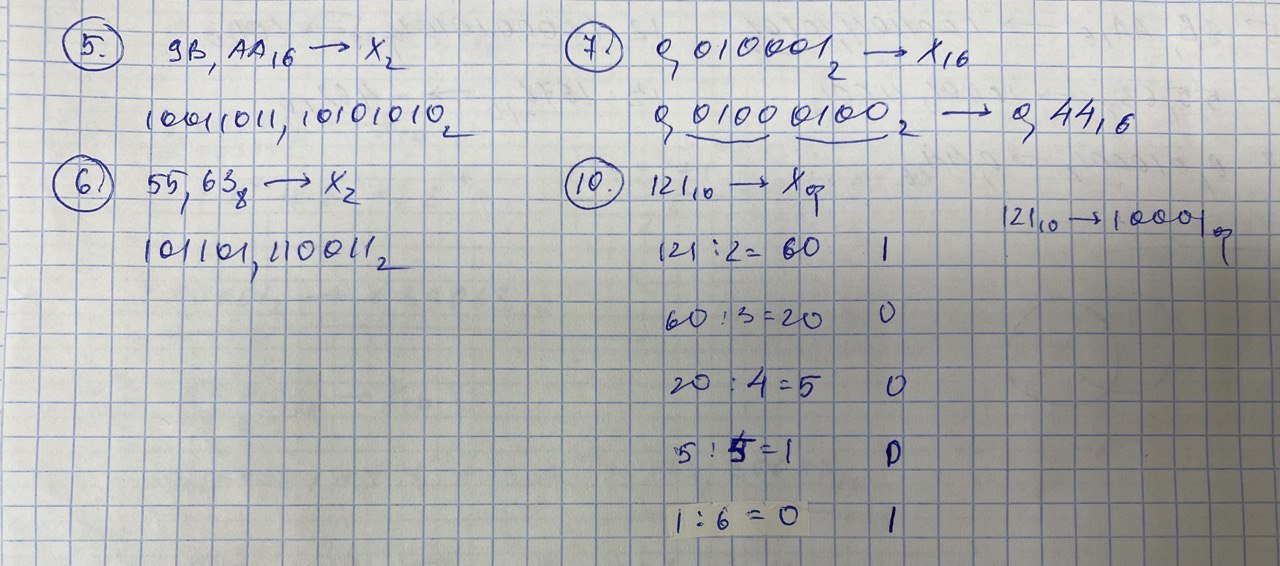 5. 9B, AA₁₆ → X₂
10011011, 10101010₂
6. 55, 63₈ → X₂
101101, 110011₂
7. 0, 010001₂ → X₁₆
0, 0100 0100₂ → 0, 44₁₆
10. 121₁₀ → Xφ
121₁₀ → 10001φ
121 : 2 = 60 1
60 : 3 = 20 0
20 : 4 = 5 0
5 : 5 = 1 0
1 : 6 = 0 1